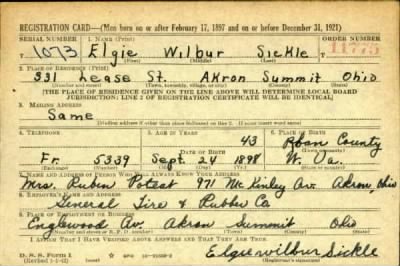 REGISTRATION CARD—(Men born on or after February 17, 1897 and on or before December 31, 1921)
SERIAL NUMBER 1. NAME (Print) ORDER NUMBER
1073 Elgie Wilbur Sickle 11775
(First) (Middle) (Last)
2. PLACE OF RESIDENCE (Print)
331 Lease St. Akron Summit Ohio
(Number and street) (Town, township, village, or city) (County) (State)
[THE PLACE OF RESIDENCE GIVEN ON THE LINE ABOVE WILL DETERMINE LOCAL BOARD
JURISDICTION; LINE 2 OF REGISTRATION CERTIFICATE WILL BE IDENTICAL]
3. MAILING ADDRESS
Same
(Mailing address if other than place indicated on line 2. If same insert word same)
4. TELEPHONE 5. AGE IN YEARS 6. PLACE OF BIRTH
43 Roan County
DATE OF BIRTH
Fr. 5339 Sept. 24 1898 W. Va.
(Exchange) (Number) (Mo.) (Day) (Yr.) (State or country)
7. NAME AND ADDRESS OF PERSON WHO WILL ALWAYS KNOW YOUR ADDRESS
Mrs. Rubin Poteat 971 Mc Kinley Av. Akron, Ohio
8. EMPLOYER'S NAME AND ADDRESS
General Tire & Rubber Co
9. PLACE OF EMPLOYMENT OR BUSINESS
Englewood Av. Akron Summit Ohio
(Number and street or R. F. D. number) (Town) (County) (State)
I AFFIRM THAT I HAVE VERIFIED ABOVE ANSWERS AND THAT THEY ARE TRUE.
D. S. S. Form 1 Elgie wilbur Sickle
(Registrant's signature)